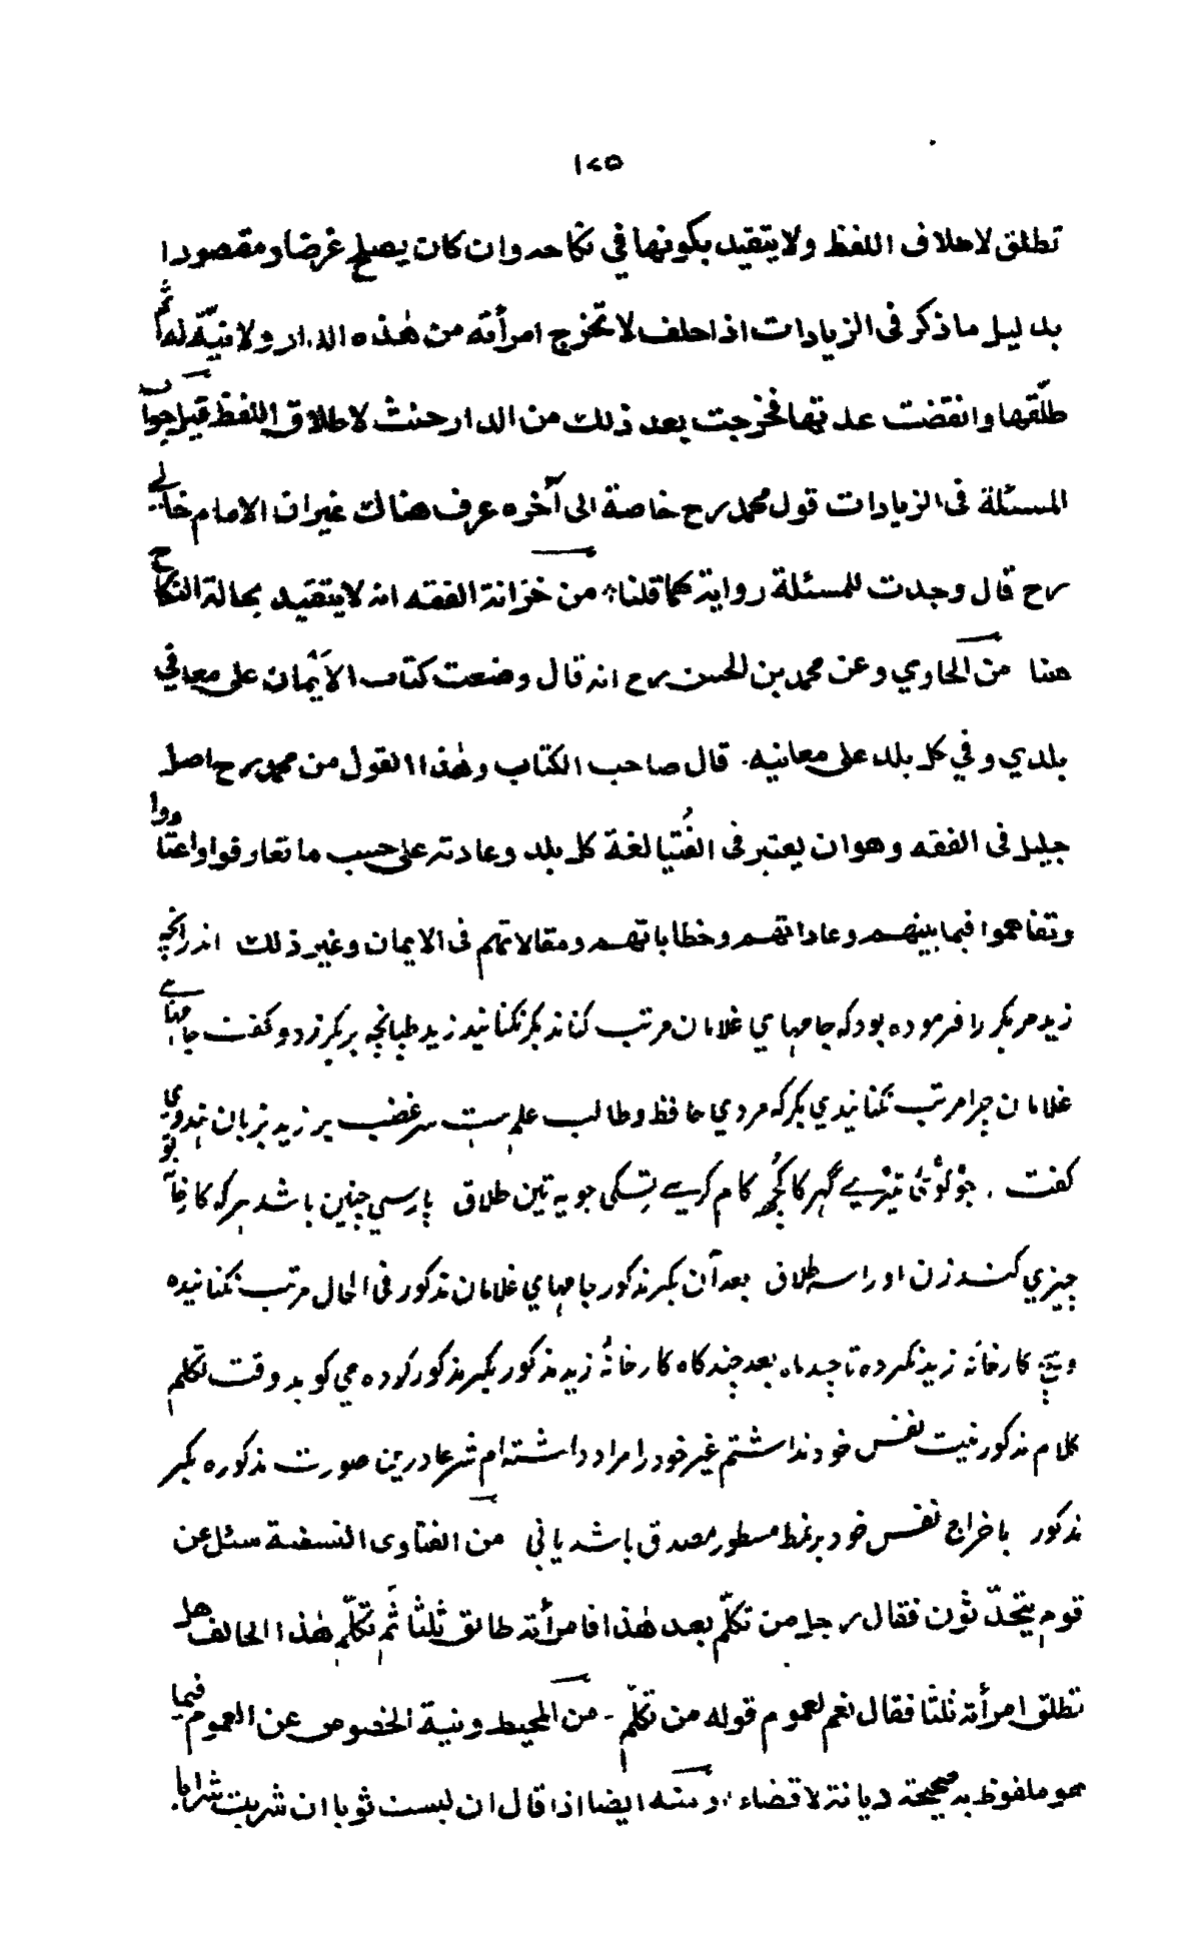 ١٧٥
تطلق لاطلاق اللفظ ولا يتقيد بكونها في نكاحه وان كان يصلح غرضا ومقصودا
بدليل ما ذكر فى الزيادات اذا حلف لا تخرج امرأته من هٰذه الدار ولا نيّة له ثم
طلّقها وانقضت عدتها فخرجت بعد ذلك من الدار حنث لاطلاق اللفظ قيل جواب
المسئلة فى الزيادات قول محمد رح خاصة الى آخره عرف هناك غير ان الامام خالي
رح قال وجدت للمسئلة رواية كما قلنا من خزانة الفقه انه لا يتقيد بحالة النكاح
هنا من الحاوي وعن محمد بن الحسن رح انه قال وضعت كتاب الأيمان على معاني
بلدي وفي كل بلد على معانيه. قال صاحب الكتاب وهٰذا القول من محمد رح اصل
جليل فى الفقه وهو ان يعتبر فى الفُتيا لغة كل بلد وعادته على حسب ما تعارفوا واعتادوا
وتفاهموا فيما بينهم وعاداتهم وخطاباتهم ومقالاتهم فى الايمان وغير ذلك اندرانچه
زيد مر بكر را فرموده بود كه جامهاي غلامان مرتب كناند بكر نكنانيد زيد طپانچه بر بكر زد و گفت جامهاے
غلامان چرا مرتب نكنانيدي بكر كه مردي حافظ وطالب علم ست سر غضب بر زيد بزبان هندوي
گفت . جو كوئى تيرے گهر كا كُچهہ كام كرے تسكى جويه تين طلاق پارسي چنين باشد هر كه كار خانۀ تو
چيزي كند زن او را سه طلاق بعد آن بكر مذكور جامهاي غلامان مذكور فى الحال مرتب نكنانيده
وهيچ كارخانه زيد نكرده تا چند ماه بعد چند گاه كارخانۀ زيد مذكور بكر مذكور كرده مي گويد وقت تكلم
كلام مذكور نيت نفس خود نداشتم غير خود را مراد داشته ام شرعا درين صورت مذكوره بكر
مذكور باخراج نفس خود بر نمط مسطور مصدق باشد يا ني من الفتاوى النسفية سئل عن
قوم يتحدّثون فقال رجل من تكلّم بعد هٰذا فامرأته طالق ثلثا ثم تكلّم هٰذا الحالف هل
تطلق امرأته ثلثا فقال نعم لعموم قوله من تكلّم ـ من المحيط ونية الخصوص عن العموم فيما
هو ملفوظ به صحيحة ديانة لا قضاء ومنه ايضا اذا قال ان لبست ثوبا ان شربت شرابا